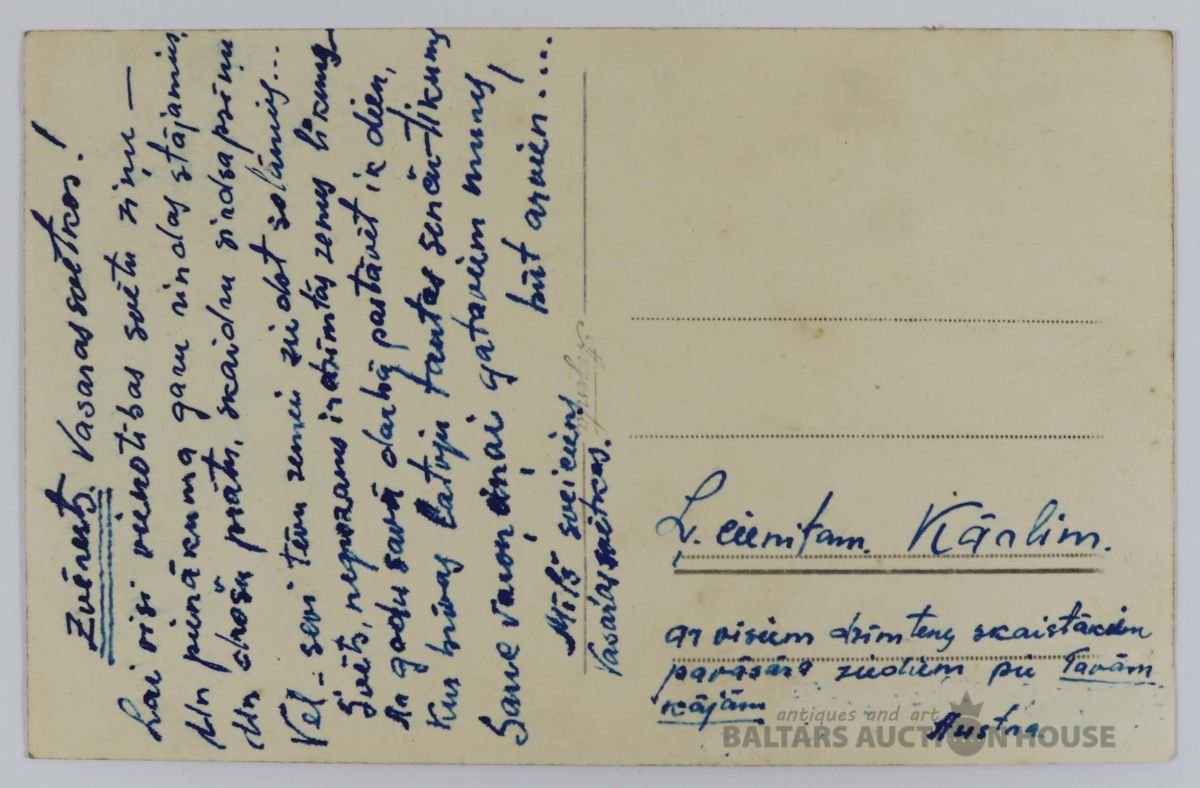 Zvērests. Vasarassvētkos!
Lai visi vienotības svētu ziņu —
Un pienākuma garu rindas stājamies,
Un drošu prātu, skaidru sirdsapziņu
Vēl - sevi tēvu zemei ziedot solāmies...
Svēts, negrozams ir dzimtās zemes likums
Ar godu savā darbā pastāvēt ik dien,
Kur brīvas Latvju tautas senču-tikums
Sauc varonīgai gataviem mums
būt arvien...
Mīļš sveiciens
Vasarassvētkos.
Ļ. cienītam. Kārlim.
ar visiem dzimtenes skaistākiem
pavasara ziediem pie Tavām
kājām
Austra
antiques and art
BALTARS AUCTION HOUSE